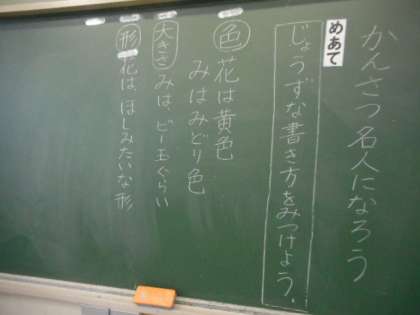 かんさつ名人になろう
めあて
じょうずな書き方をみつけよう.
色 花は黄色
みはみどり色
大きさ みは、ビー玉ぐらい
形 花は、ほしみたいな形